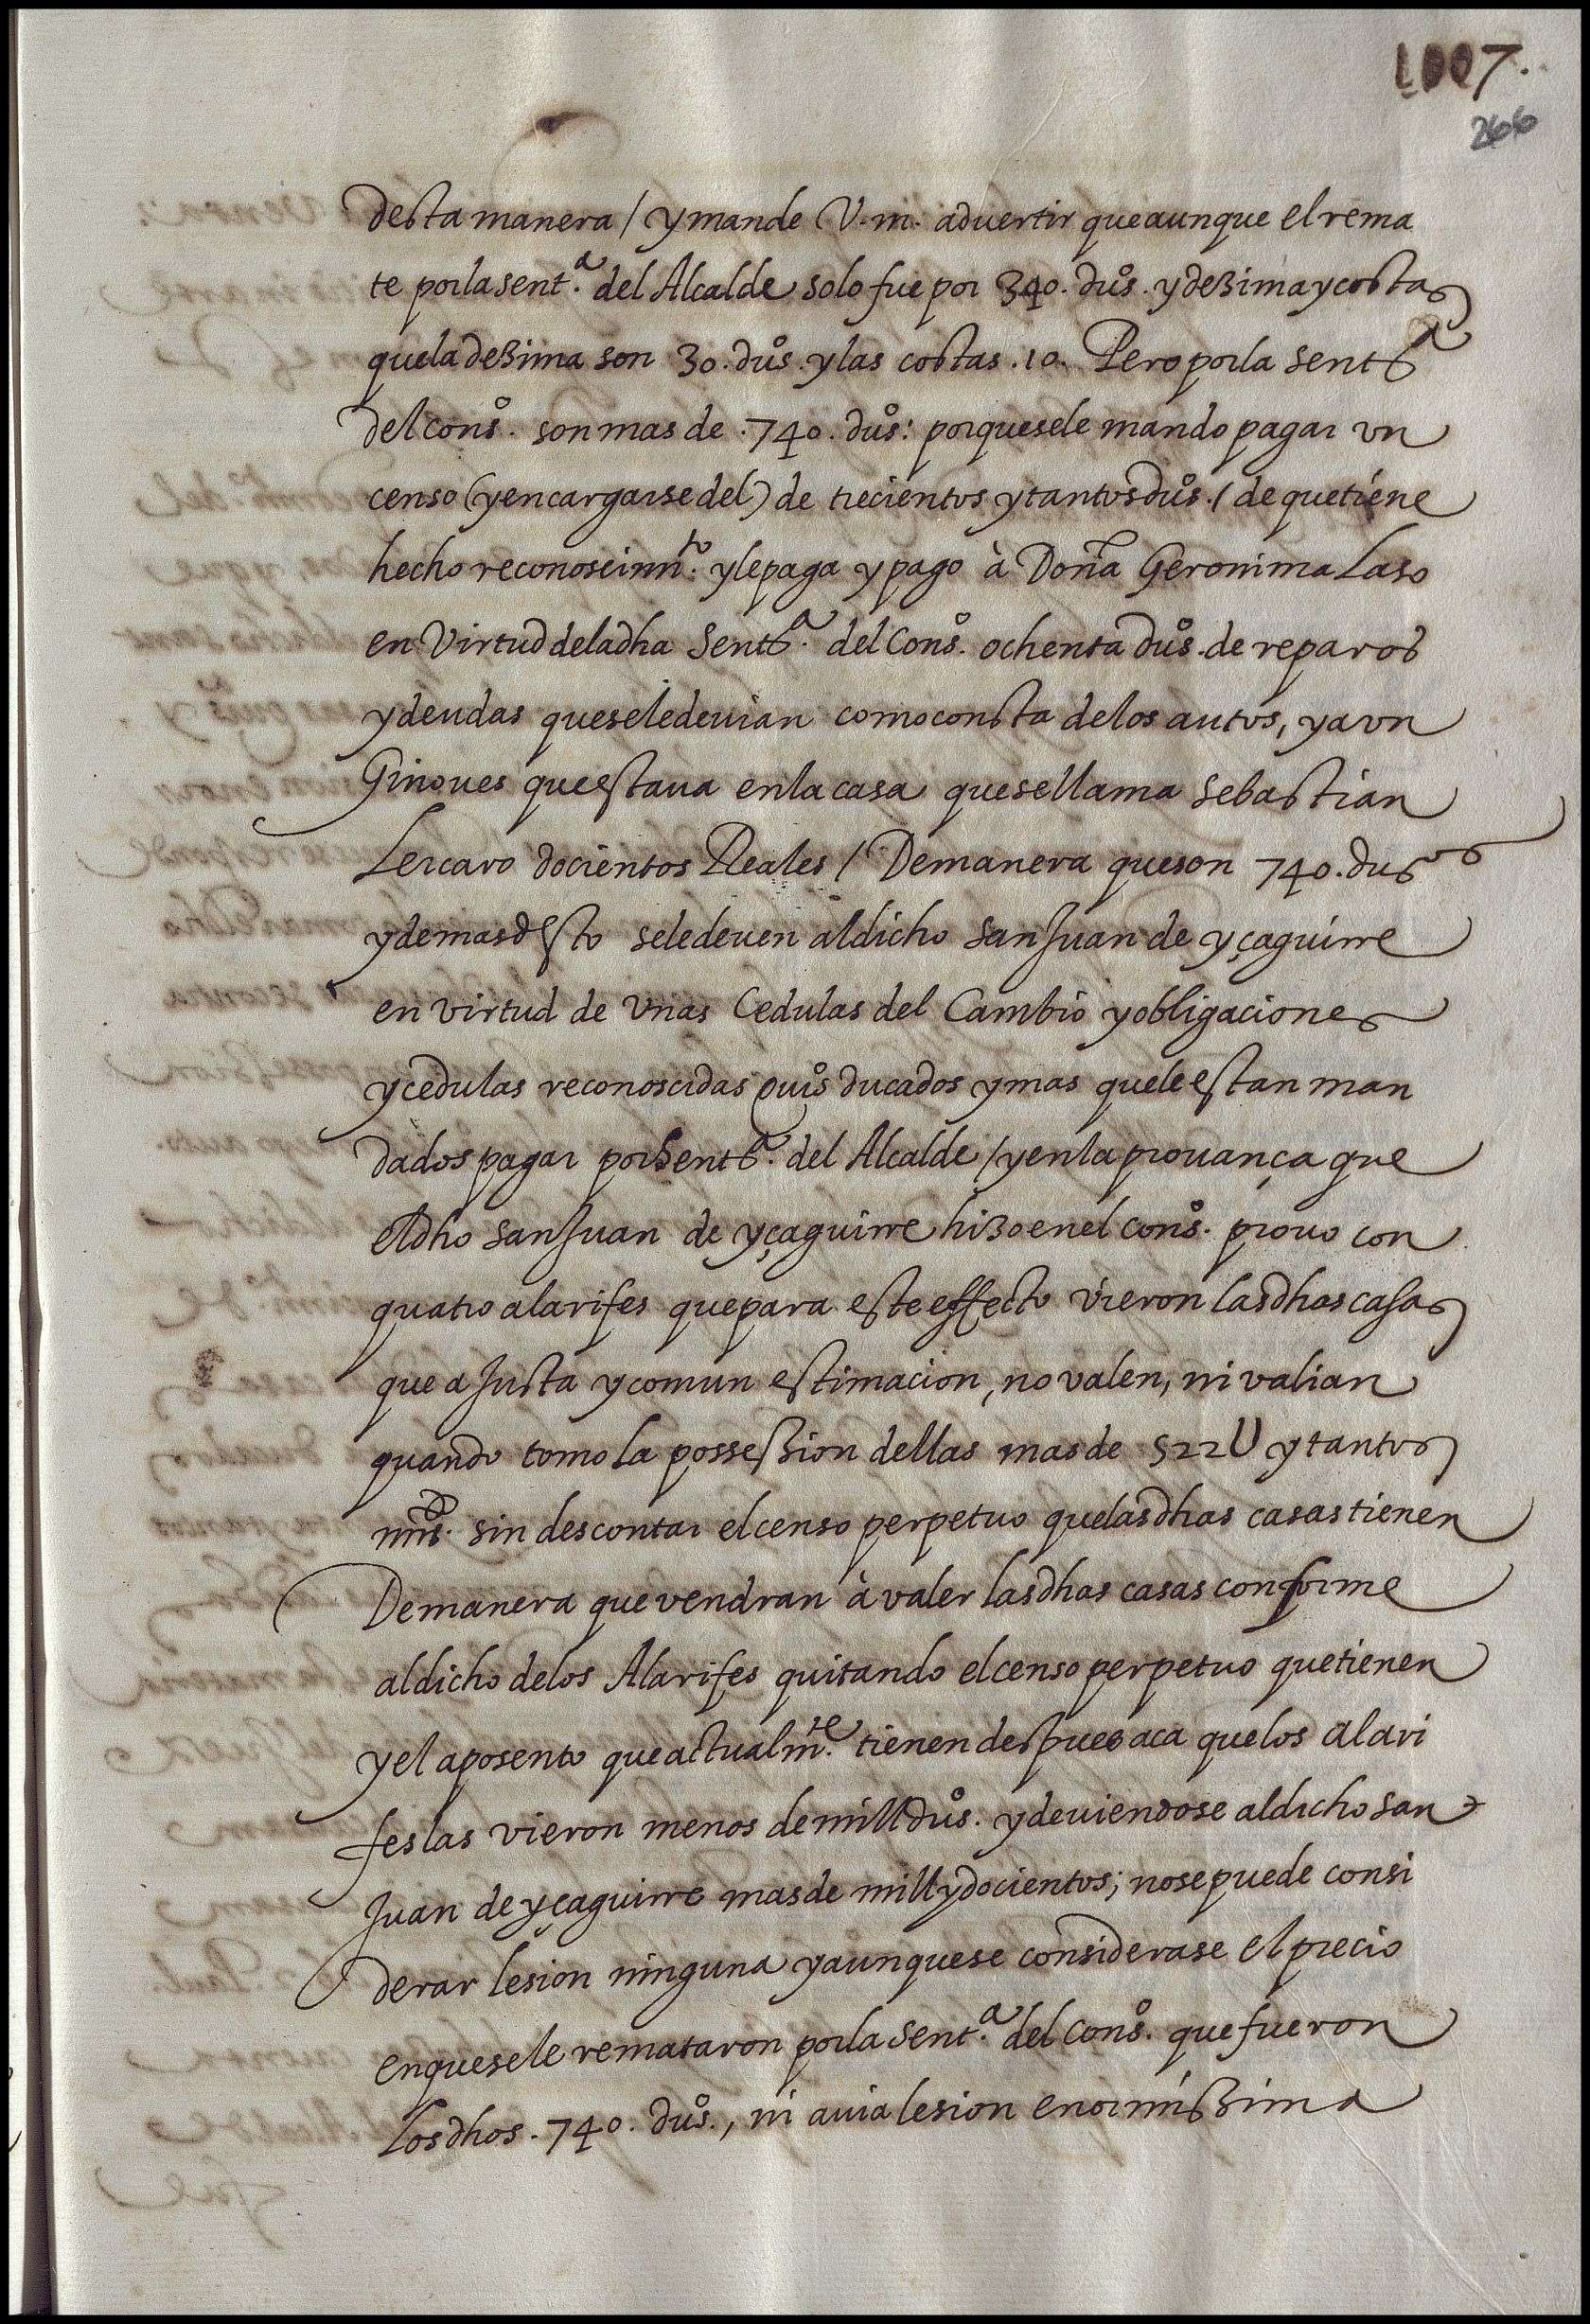 1007.
266
desta manera / y mande V. m. aduertir que aunque el rema
te por la sent.ª del Alcalde solo fue por 340. dus. y desima y costas
que la desima son 30. dus. y las costas .10. Pero por la sentª
del cons.º son mas de .740. dus: porque se le mando pagar vn
censo (y encargarse del) de trecientos y tantos dus. / de que tiene
hecho reconoseimto. y le paga y pago à Doña Geronima Laso
en Virtud de la dha Sentª. del Cons.º ochenta dus. de reparos
y deudas que se le deuian como consta de los autos, y a vn
Ginoues que estaua en la casa que se llama Sebastian
Lercaro docientos Reales / De manera que son 740. dus
y demas desto se le deuen al dicho San Juan de yçaguirre
en virtud de vnas Cedulas del Cambio y obligaciones
y cedulas reconoscidas ducados y mas que le estan man
dados pagar por Sentª. del Alcalde / y en la prouança que
el dho San Juan de yçaguirre hizo en el cons.º prouo con
quatro alarifes que para este effecto vieron las dhas casas
que a Justa y comun estimacion, no valen, ni valian
quando tomo la possession dellas mas de 522U y tantos
mrs. sin descontar el censo perpetuo que las dhas casas tienen
De manera que vendran à valer las dhas casas conforme
al dicho de los Alarifes quitando el censo perpetuo que tienen
y el aposento que actualmte. tienen despues aca que los alari
fes las vieron menos de mill dus. y deuiendose al dicho San
Juan de yçaguirre mas de mill y docientos; no se puede consi
derar lesion ninguna y aunque se considerase el precio
en que se le remataron por la Sent.ª del Cons.º que fueron
Los dhos .740. dus., ni auia lesion enormissima